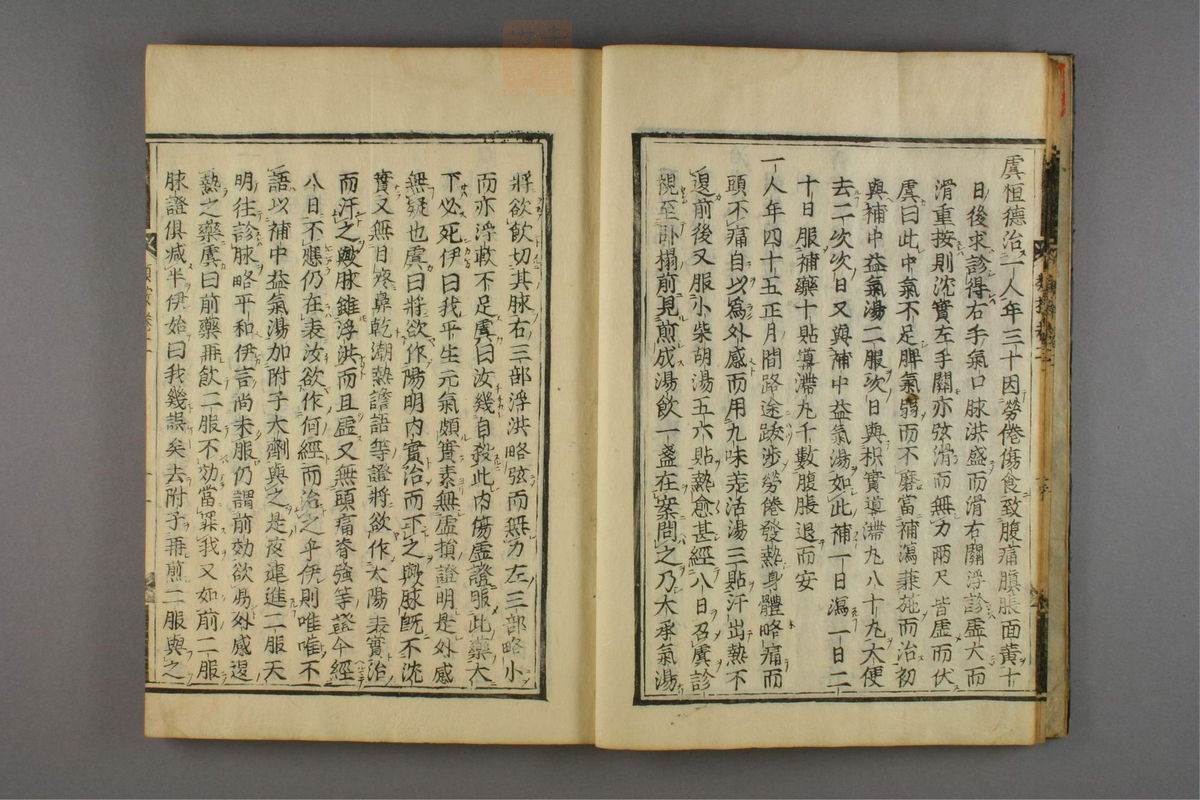 虞恒德治一人年三十因勞倦傷食致腹痛䐜脹面黃十
日後求診得右手氣口脉洪盛而滑右關浮診虛大而
滑重按則沈實左手關亦弦滑而無力兩尺皆虛而伏
虞曰此中氣不足脾氣弱而不磨當補瀉兼施而治初
與補中益氣湯二服次日與枳實導滯丸八十丸大便
去二次次日又與補中益氣湯如此補一日瀉一日二
十日服補藥十貼導滯丸千數腹脹退而安
一人年四十五正月間路途跋涉勞倦發熱身體略痛而
頭不痛自以爲外感而用九味羗活湯三貼汗出熱不
退前後又服小柴胡湯五六貼熱愈甚經八日召虞診
視至卧榻前見煎成湯飲一盞在案問之乃大承氣湯
將欲飲切其脉右三部浮洪略弦而無力左三部略小
而亦浮軟不足虞曰汝幾自殺此内傷虛證服此藥大
下必死伊曰我平生元氣頗實素無虛損證明是外感
無疑也虞曰將欲作陽明内實治而下之與脉旣不沈
實又無目疼鼻乾潮熱譫語等證將欲作太陽表實治
而汗之與脉雖浮洪而且虛又無頭痛脊強等證今經
八日不應仍在表汝欲作何經而治之乎伊則唯唯不
語以補中益氣湯加附子大劑與之是夜連進二服天
明往診脉略平和伊言尚未服仍謂前効欲易外感退
熱之藥虞曰前藥再飲二服不効當罪我又如前二服
脉證俱減半伊始曰我幾誤矣去附子再煎二服與之